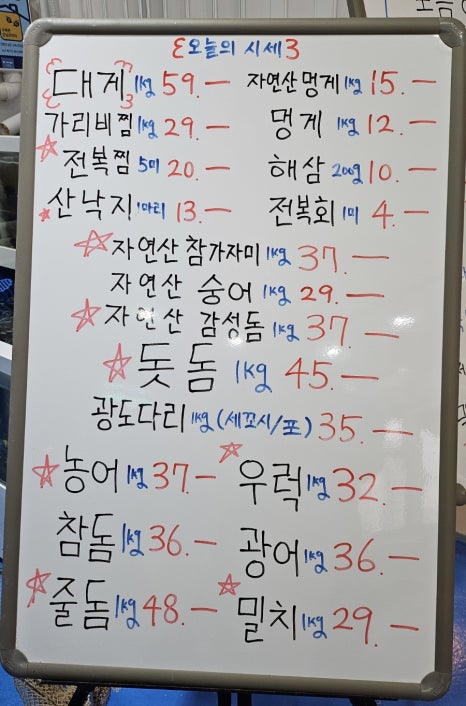 오늘의 시세
대게 1kg 59.— 자연산 멍게 1kg 15.—
가리비찜 1kg 29.— 멍게 1kg 12.—
전복찜 5미 20.— 해삼 200g 10.—
산낙지 1마리 13.— 전복회 1미 4.—
자연산 참가자미 1kg 37.—
자연산 숭어 1kg 29.—
자연산 감성돔 1kg 37.—
돗돔 1kg 45.—
광도다리 1kg (세꼬시/포) 35.—
농어 1kg 37.— 우럭 1kg 32.—
참돔 1kg 36.— 광어 1kg 36.—
줄돔 1kg 48.— 밀치 1kg 29.—